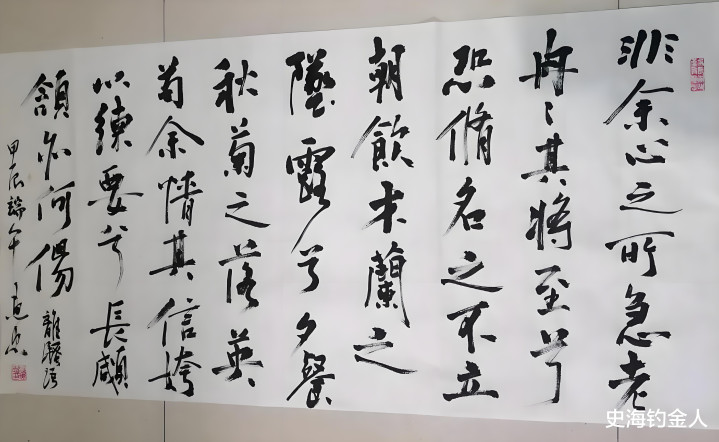 非余心之所急老
冉〻其將至兮
恐脩名之不立
朝飲木蘭之
墜露兮夕餐
秋菊之落英
苟余情其信姱
以練要兮長顑
頷亦何傷 離騷語
甲辰端午
史海钓金人